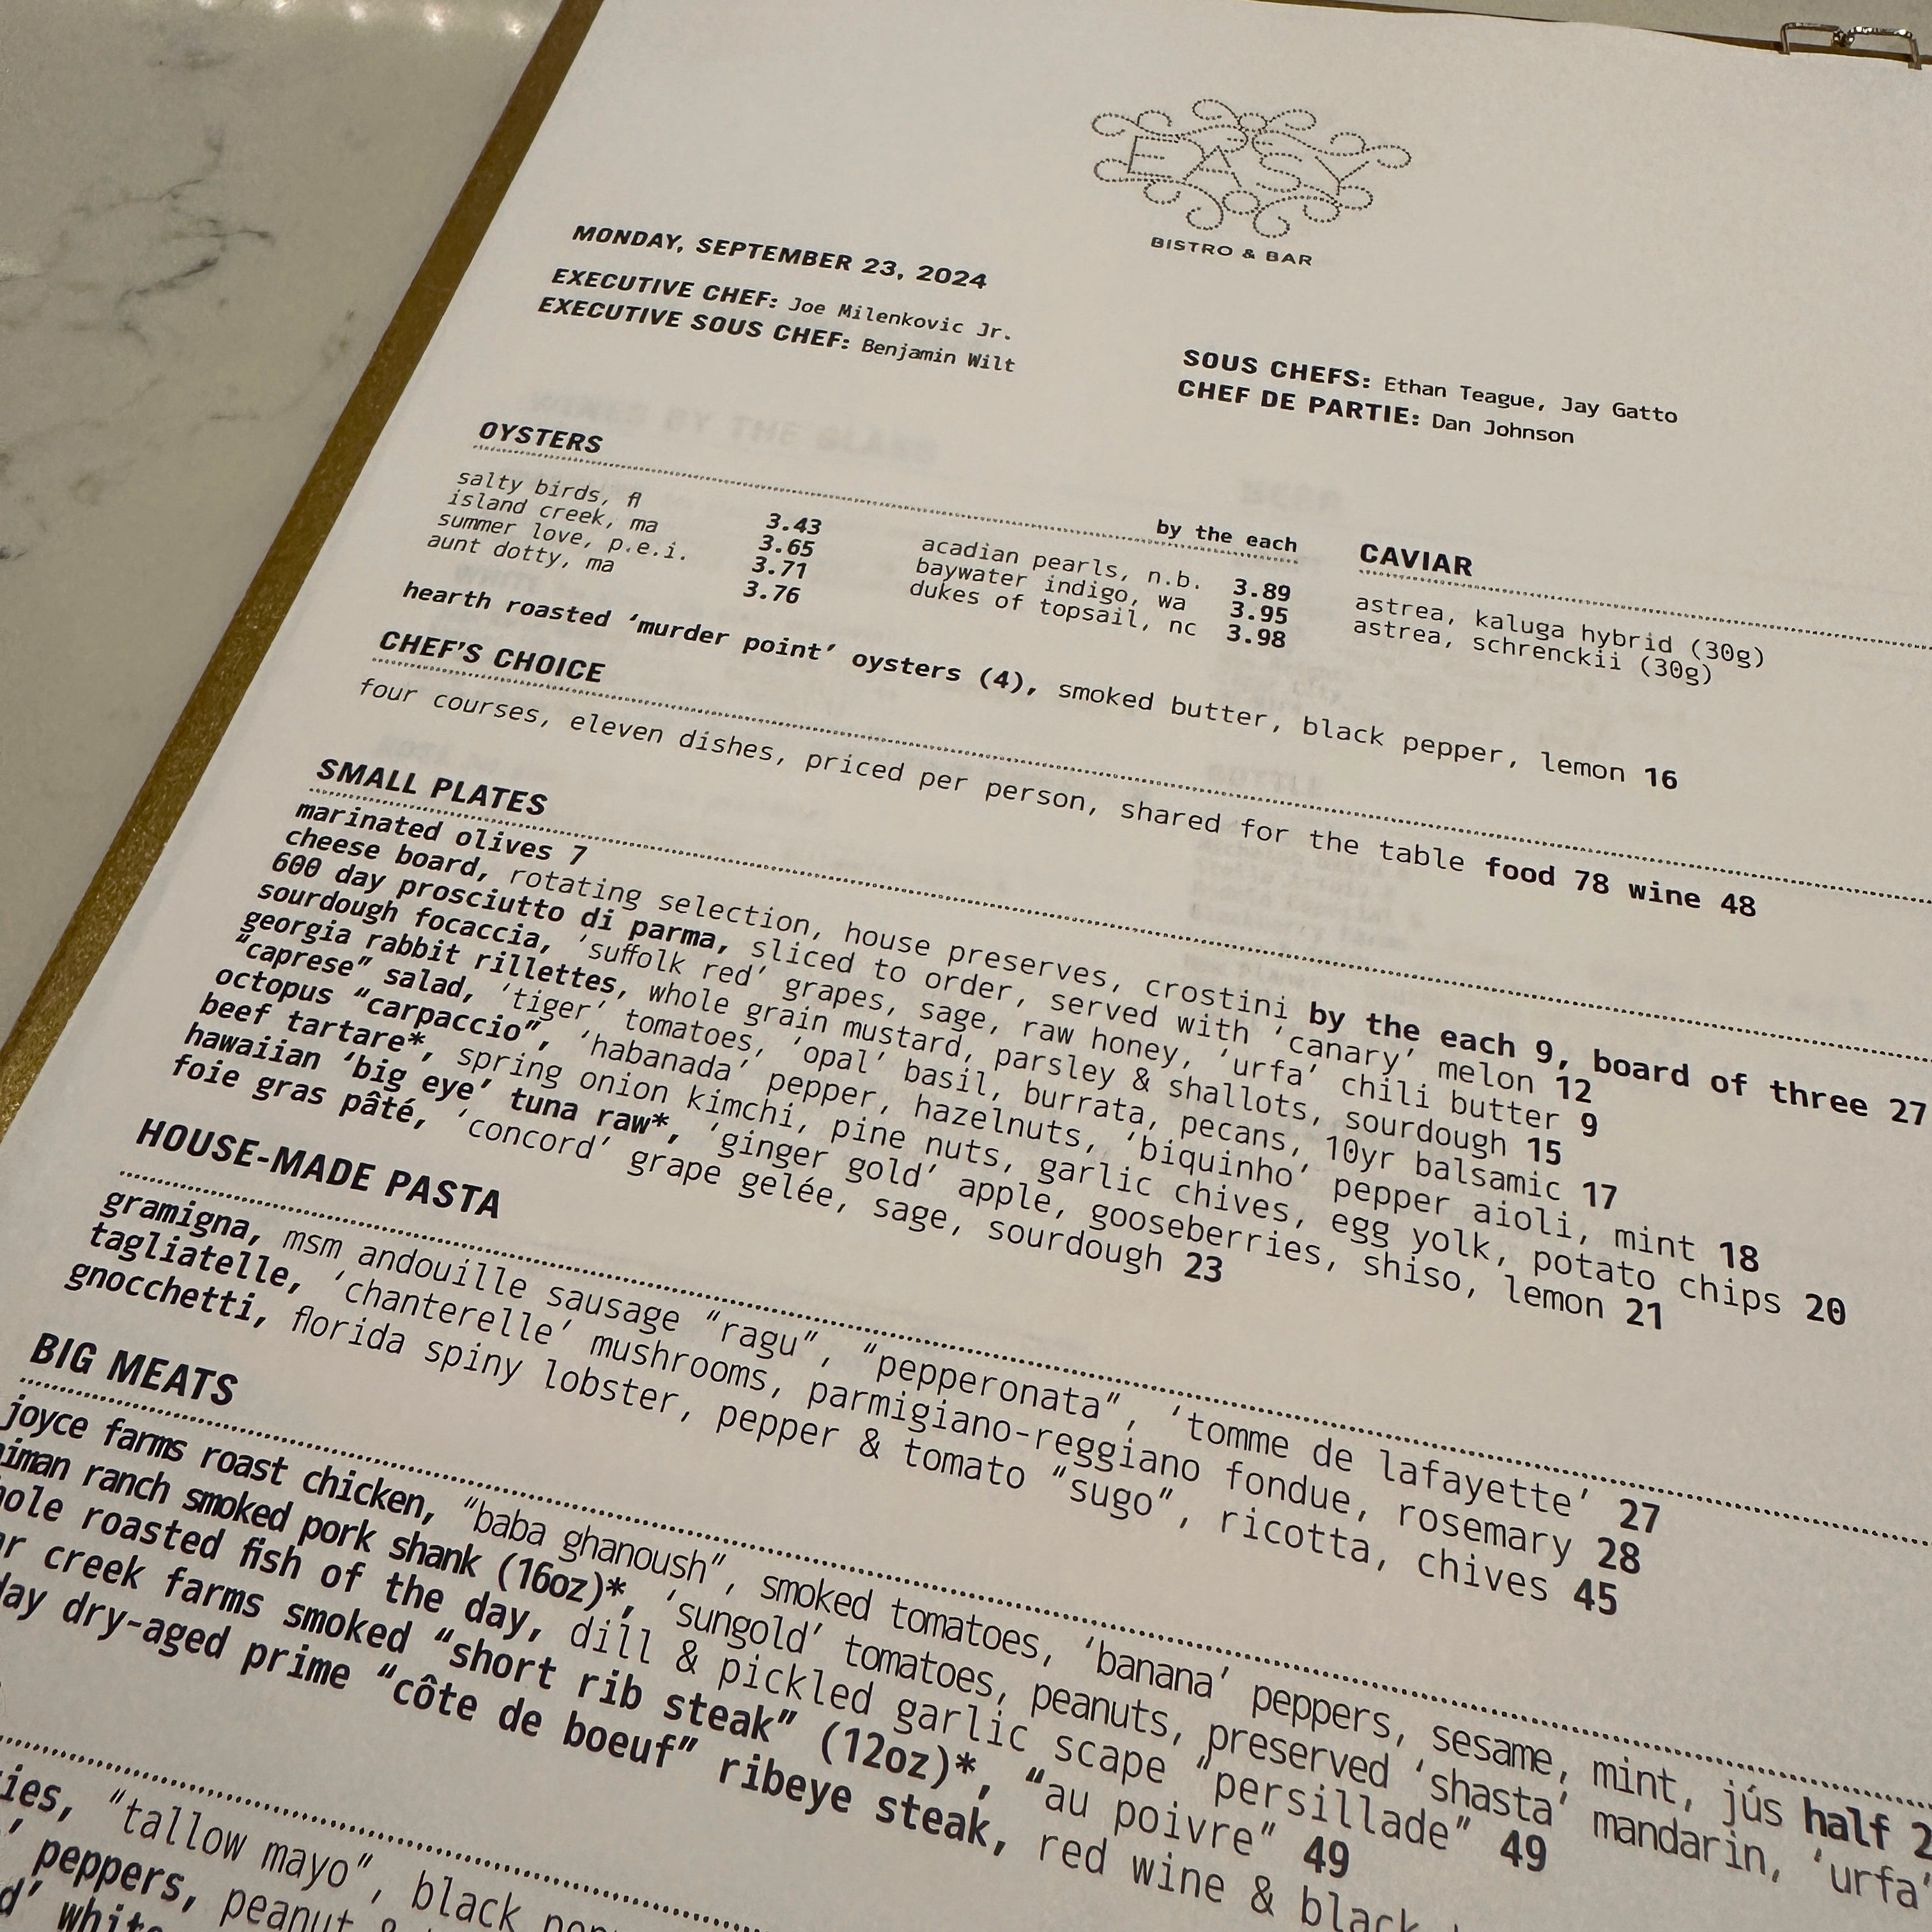 EASY
BISTRO & BAR
MONDAY, SEPTEMBER 23, 2024
EXECUTIVE CHEF: Joe Milenkovic Jr.
EXECUTIVE SOUS CHEF: Benjamin Wilt
SOUS CHEFS: Ethan Teague, Jay Gatto
CHEF DE PARTIE: Dan Johnson
OYSTERS
by the each
salty birds, fl 3.43
island creek, ma 3.65
summer love, p.e.i. 3.71
aunt dotty, ma 3.76
acadian pearls, n.b. 3.89
baywater indigo, wa 3.95
dukes of topsail, nc 3.98
hearth roasted ‘murder point’ oysters (4), smoked butter, black pepper, lemon 16
CAVIAR
astrea, kaluga hybrid (30g)
astrea, schrenckii (30g)
CHEF’S CHOICE
four courses, eleven dishes, priced per person, shared for the table food 78 wine 48
SMALL PLATES
marinated olives 7
cheese board, rotating selection, house preserves, crostini by the each 9, board of three 27
600 day prosciutto di parma, sliced to order, served with ‘canary’ melon 12
sourdough focaccia, ‘suffolk red’ grapes, sage, raw honey, ‘urfa’ chili butter 9
georgia rabbit rillettes, whole grain mustard, parsley & shallots, sourdough 15
“caprese” salad, ‘tiger’ tomatoes, ‘opal’ basil, burrata, pecans, 10yr balsamic 17
octopus “carpaccio”, ‘habanada’ pepper, hazelnuts, ‘biquinho’ pepper aioli, mint 18
beef tartare*, spring onion kimchi, pine nuts, garlic chives, egg yolk, potato chips 20
hawaiian ‘big eye’ tuna raw*, ‘ginger gold’ apple, gooseberries, shiso, lemon 21
foie gras pâté, ‘concord’ grape gelée, sage, sourdough 23
HOUSE-MADE PASTA
gramigna, msm andouille sausage “ragu”, “pepperonata”, ‘tomme de lafayette’ 27
tagliatelle, ‘chanterelle’ mushrooms, parmigiano-reggiano fondue, rosemary 28
gnocchetti, florida spiny lobster, pepper & tomato “sugo”, ricotta, chives 45
BIG MEATS
joyce farms roast chicken, “baba ghanoush”, smoked tomatoes, ‘banana’ peppers, sesame, mint, jús half
ranch smoked pork shank (16oz)*, ‘sungold’ tomatoes, peanuts, preserved ‘shasta’ mandarin, ‘urfa’
roasted fish of the day, dill & pickled garlic scape “persillade” 49
creek farms smoked “short rib steak” (12oz)*, “au poivre” 49
dry-aged prime “côte de boeuf” ribeye steak, red wine & black
“tallow mayo”, black
peppers, peanut &